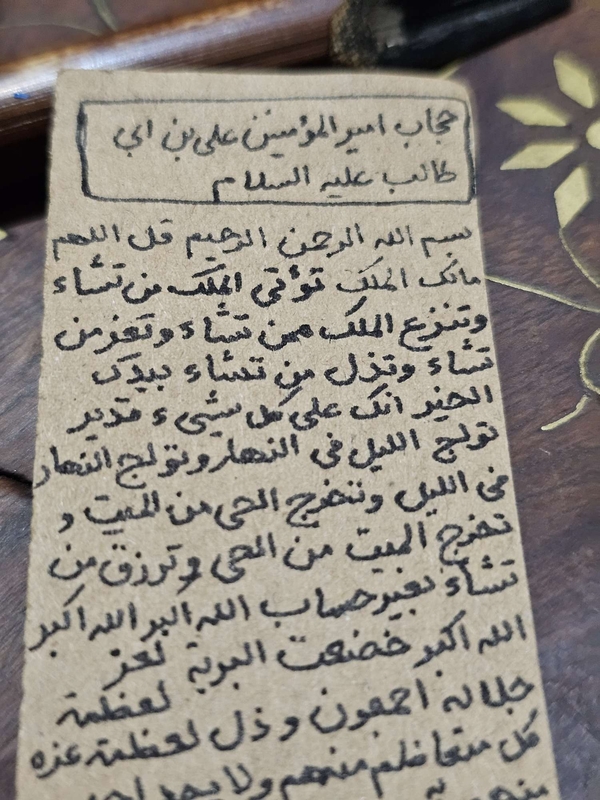 حجاب امير المؤمنين علي بن ابي
طالب عليه السلام
بسم الله الرحمن الرحيم قل اللهم
مالك الملك تؤتي الملك من تشاء
وتنزع الملك ممن تشاء وتعز من
تشاء وتذل من تشاء بيدك
الخير انك على كل شيء قدير
تولج الليل في النهار وتولج النهار
في الليل وتخرج الحي من الميت و
تخرج الميت من الحي وترزق من
تشاء بغير حساب الله اكبر الله اكبر
الله اكبر خضعت البرية لعز
جلاله اجمعون وذل لعظمة
لعظمة عزه
كل متعاظم منهم ولا يجد احد